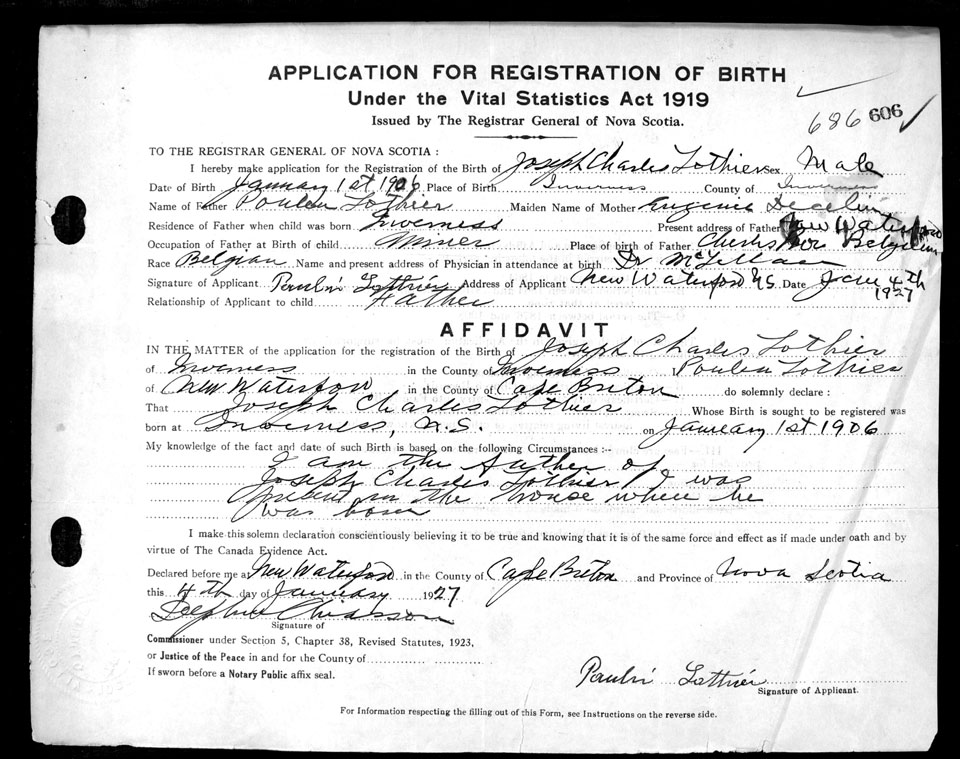 APPLICATION FOR REGISTRATION OF BIRTH
Under the Vital Statistics Act 1919
Issued by The Registrar General of Nova Scotia.
686 606
TO THE REGISTRAR GENERAL OF NOVA SCOTIA :
I hereby make application for the Registration of the Birth of Joseph Charles Lothier Sex Male
Date of Birth January 1st 1906 Place of Birth Inverness County of Inverness
Name of Father Poulin Lothier Maiden Name of Mother Eugenie
Residence of Father when child was born Inverness Present address of Father New Waterford
Occupation of Father at Birth of child Miner Place of birth of Father Belgium
Race Belgian Name and present address of Physician in attendance at birth Dr McLellan
Signature of Applicant Paulin Lothier Address of Applicant New Waterford NS Date Jan 4th 1927
Relationship of Applicant to child Father
AFFIDAVIT
IN THE MATTER of the application for the registration of the Birth of Joseph Charles Lothier
of Inverness in the County of Inverness Poulin Lothier
of New Waterford in the County of Cape Breton do solemnly declare :
That Joseph Charles Lothier Whose Birth is sought to be registered was
born at Inverness, N.S. on January 1st 1906
My knowledge of the fact and date of such Birth is based on the following Circumstances :-
I am the father of
Joseph Charles Lothier I was
present in the house where he
was born
I make this solemn declaration conscientiously believing it to be true and knowing that it is of the same force and effect as if made under oath and by
virtue of The Canada Evidence Act.
Declared before me at New Waterford in the County of Cape Breton and Province of Nova Scotia
this 4th day of January 1927
Chiasson
Signature of
Commissioner under Section 5, Chapter 38, Revised Statutes, 1923,
or Justice of the Peace in and for the County of
If sworn before a Notary Public affix seal.
Paulin Lothier
Signature of Applicant.
For Information respecting the filling out of this Form, see Instructions on the reverse side.